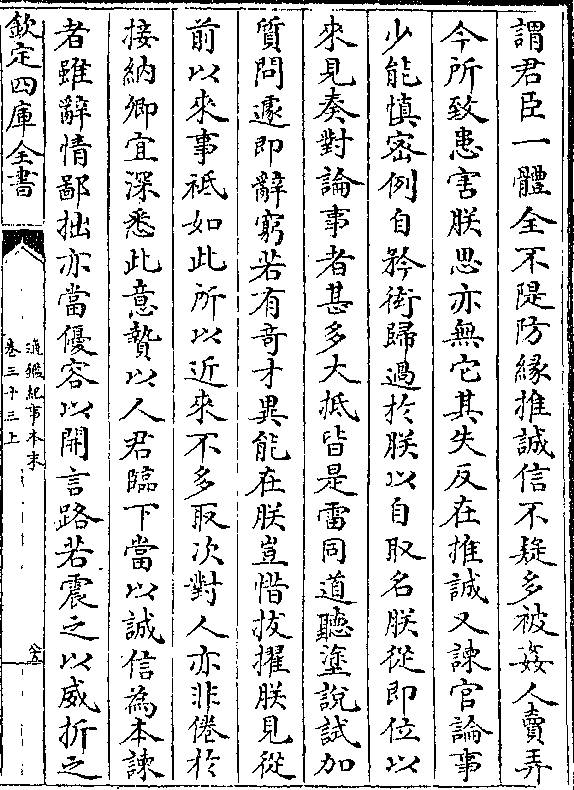 謂君臣一體全不隄防縁推誠信不疑多被姦人賣弄
今所致患害朕思亦無它其失反在推誠又諫官論事
少能慎密例自矜衒歸過於朕以自取名朕從即位以
來見奏對論事者甚多大抵皆是雷同道聽塗說試加
質問遽即辭窮若有竒才異能在朕豈惜拔擢朕見從
前以來事祗如此所以近來不多取次對人亦非倦於
接納卿宜深悉此意贄以人君臨下當以誠信為本諫
者雖辭情鄙拙亦當優容以開言路若震之以威折之
欽定四庫全書
通鑑紀事本末
卷三十三上